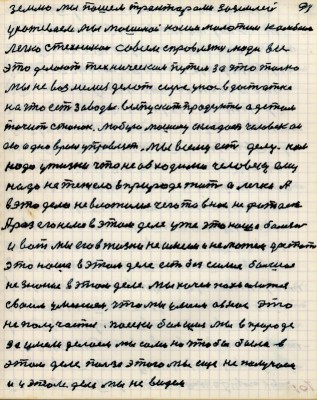 землю мы пашем тракторами за землей 94
ухаживаем мы машиной косим молотим комбаин
легко с техникой совсем справляют люди все
это делают техническим путем за это только
мы не возмем делат сырье у нас в достатке
на это ест заводы выпускают продукты а детали
точит станок. любую машину снимает человек а
его одно время управляет. мы всему ест делу. нам
надо у жизне что необходимо человеку ему
надо не тяжело в природе жит а легко А
в это дело не вложиш чего то в нас не фатает
Прозевано в этом деле уже это наша болезн
и вот мы его в жизнь не имеем и не можем достат
это наша в этом деле ест без силие большое
не знание в этом деле мы хочем похвалится
своим умением, что мы умеем а в нас это
не получается. посевы большие мы в природе
за имеля делаем мы сами но чтобы было в
этом деле польза этого мы еще не получаем
и у этом деле мы не видем